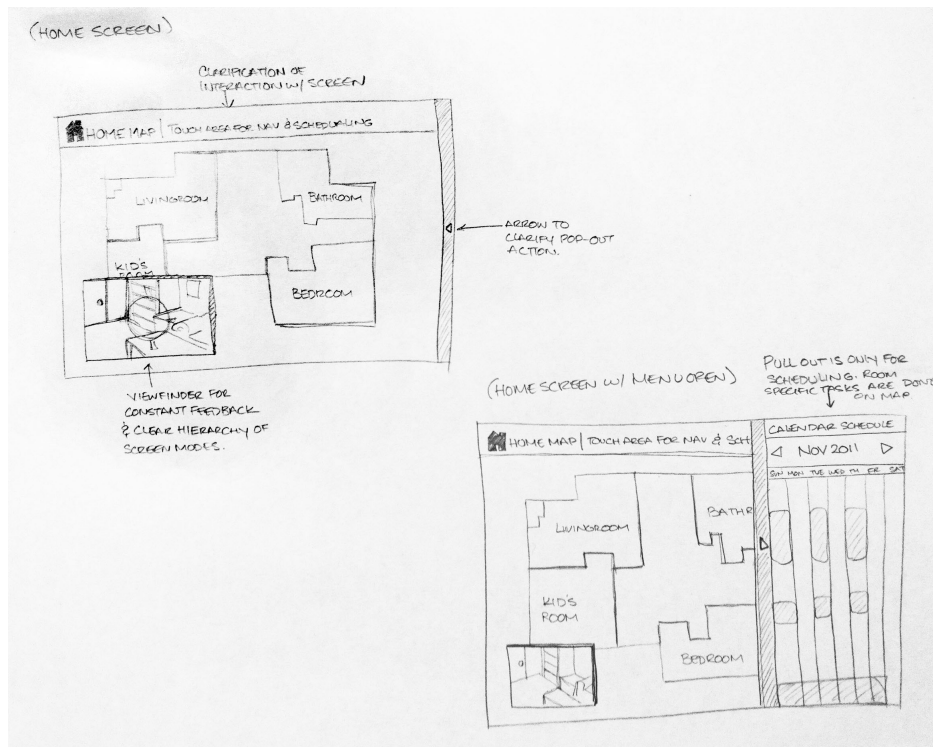 (HOME SCREEN)
CLARIFICATION OF
INTERACTION W/ SCREEN
HOME MAP | TOUCH AREA FOR NAV & SCHEDULING
LIVINGROOM
BATHROOM
KID'S
ROOM
BEDROOM
ARROW TO
CLARIFY POP-OUT
ACTION.
VIEWFINDER FOR
CONSTANT FEEDBACK
& CLEAR HIERARCHY OF
SCREEN MODES.
(HOME SCREEN W/ MENU OPEN)
PULL OUT IS ONLY FOR
SCHEDULING. ROOM
SPECIFIC TASKS ARE DONE
ON MAP
HOME MAP | TOUCH AREA FOR NAV & SCH
CALENDAR SCHEDULE
NOV 2011
SUN MON TUE WED TH FR SAT
LIVINGROOM
BATHR
KID'S
ROOM
BEDROOM